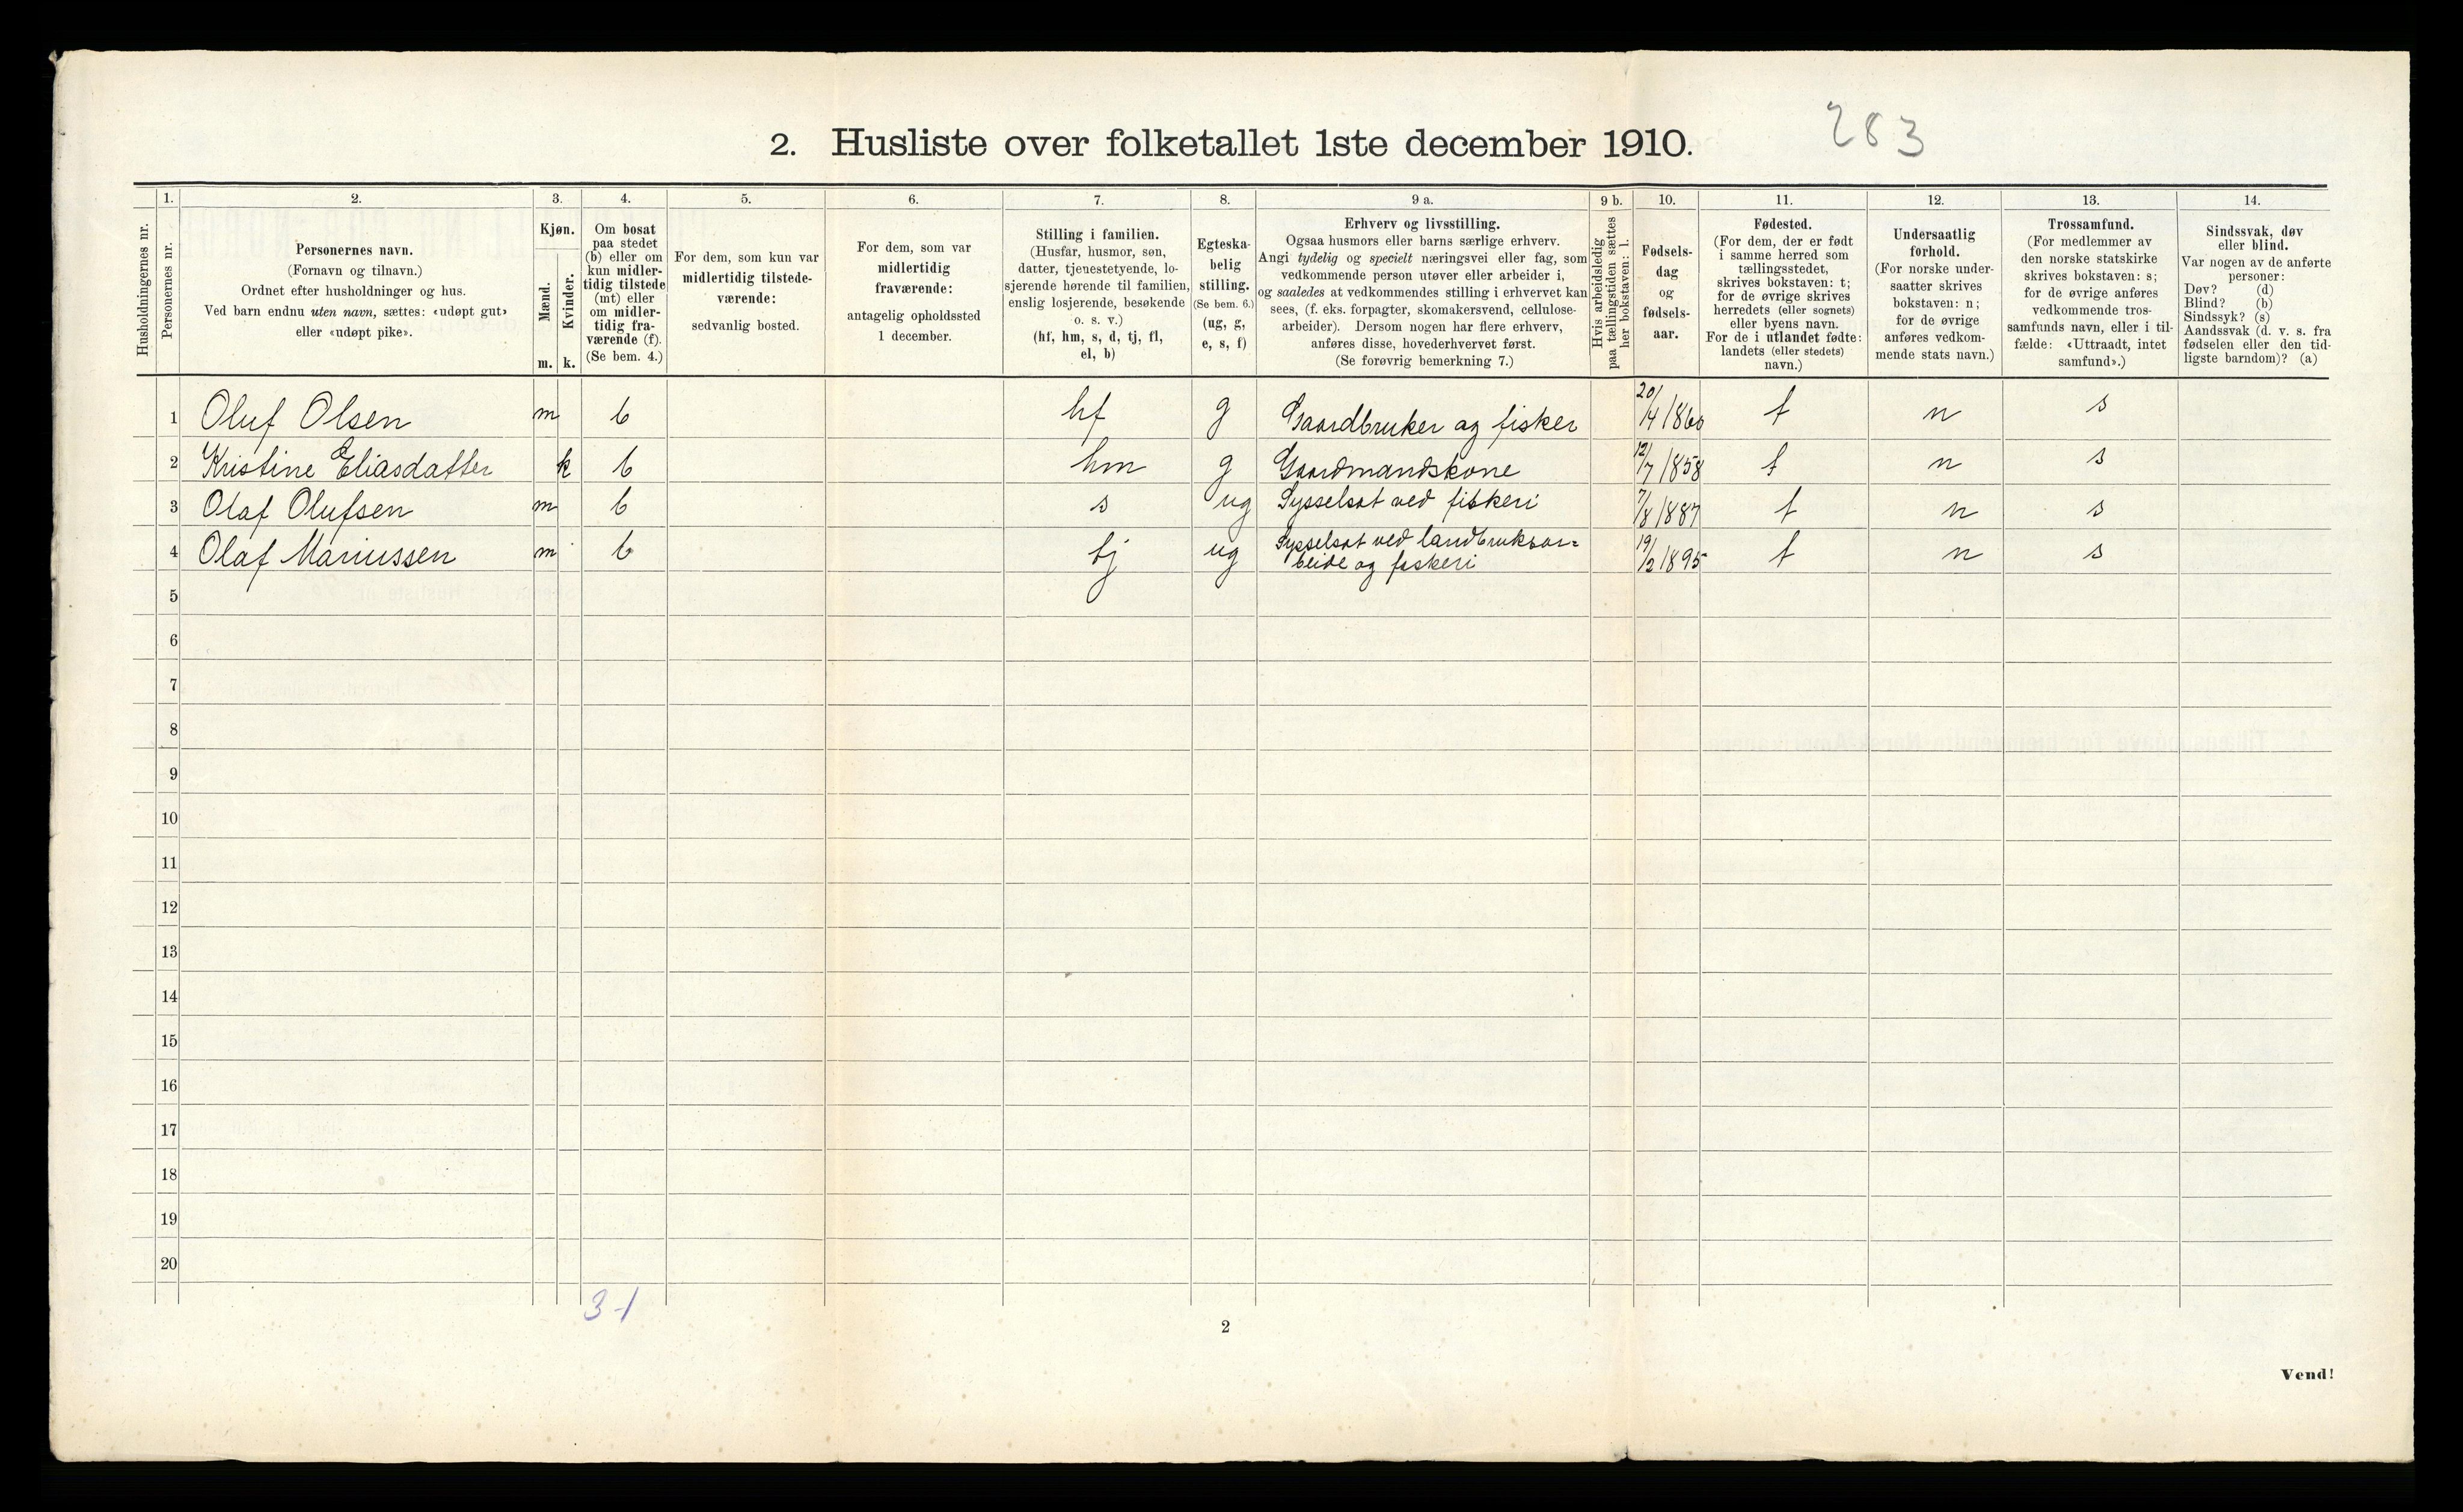 283
2. Husliste over folketallet 1ste december 1910.
Husholdningernes nr.
1.
Personernes nr.
2.
Personernes navn.
(Fornavn og tilnavn.)
Ordnet efter husholdninger og hus.
Ved barn endnu uten navn, sættes: «udøpt gut»
eller «udøpt pike».
3.
Kjøn.
Mænd.
m.
Kvinder.
k.
4.
Om bosat
paa stedet
(b) eller om
kun midler-
tidig tilstede
(mt) eller
om midler-
tidig fra-
værende (f).
(Se bem. 4.)
5.
For dem, som kun var
midlertidig tilstede-
værende:
sedvanlig bosted.
6.
For dem, som var
midlertidig
fraværende:
antagelig opholdssted
1 december.
7.
Stilling i familien.
(Husfar, husmor, søn,
datter, tjenestetyende, lo-
sjerende hørende til familien,
enslig losjerende, besøkende
o. s. v.)
(hf, hm, s, d, tj, fl,
el, b)
8.
Egteska-
belig
stilling.
(Se bem. 6.)
(ug, g,
e, s, f)
9 a.
Erhverv og livsstilling.
Ogsaa husmors eller barns særlige erhverv.
Angi tydelig og specielt næringsvei eller fag, som
vedkommende person utøver eller arbeider i,
og saaledes at vedkommendes stilling i erhvervet kan
sees, (f. eks. forpagter, skomakersvend, cellulose-
arbeider). Dersom nogen har flere erhverv,
anføres disse, hovederhvervet først.
(Se forøvrig bemerkning 7.)
9 b.
Hvis arbeidsledig
paa tællingstiden sættes
her bokstaven: l.
10.
Fødsels-
dag
og
fødsels-
aar.
11.
Fødested.
(For dem, der er født
i samme herred som
tællingsstedet,
skrives bokstaven: t;
for de øvrige skrives
herredets (eller sognets)
eller byens navn.
For de i utlandet fødte:
landets (eller stedets)
navn.)
12.
Undersaatlig
forhold.
(For norske under-
saatter skrives
bokstaven: n;
for de øvrige
anføres vedkom-
mende stats navn.)
13.
Trossamfund.
(For medlemmer av
den norske statskirke
skrives bokstaven: s;
for de øvrige anføres
vedkommende tros-
samfunds navn, eller i til-
fælde: «Uttraadt, intet
samfund».)
14.
Sindssvak, døv
eller blind.
Var nogen av de anførte
personer:
Døv? (d)
Blind? (b)
Sindssyk? (s)
Aandssvak (d. v. s. fra
fødselen eller den tid-
ligste barndom)? (a)
1 Oluf Olsen m b hf g Gaardbruker og fisker 20/4 1860 t n s
2 Kristine Eliasdatter k b hm g Gaardmandskone 12/7 1858 t n s
3 Olaf Olufsen m b s ug Sysselsat ved fiskeri 7/8 1887 t n s
4 Olaf Mariussen m b tj ug Sysselsat ved landbruksar=
beide og fiskeri 19/2 1895 t n s
5
6
7
8
9
10
11
12
13
14
15
16
17
18
19
20
3-1
2
Vend!